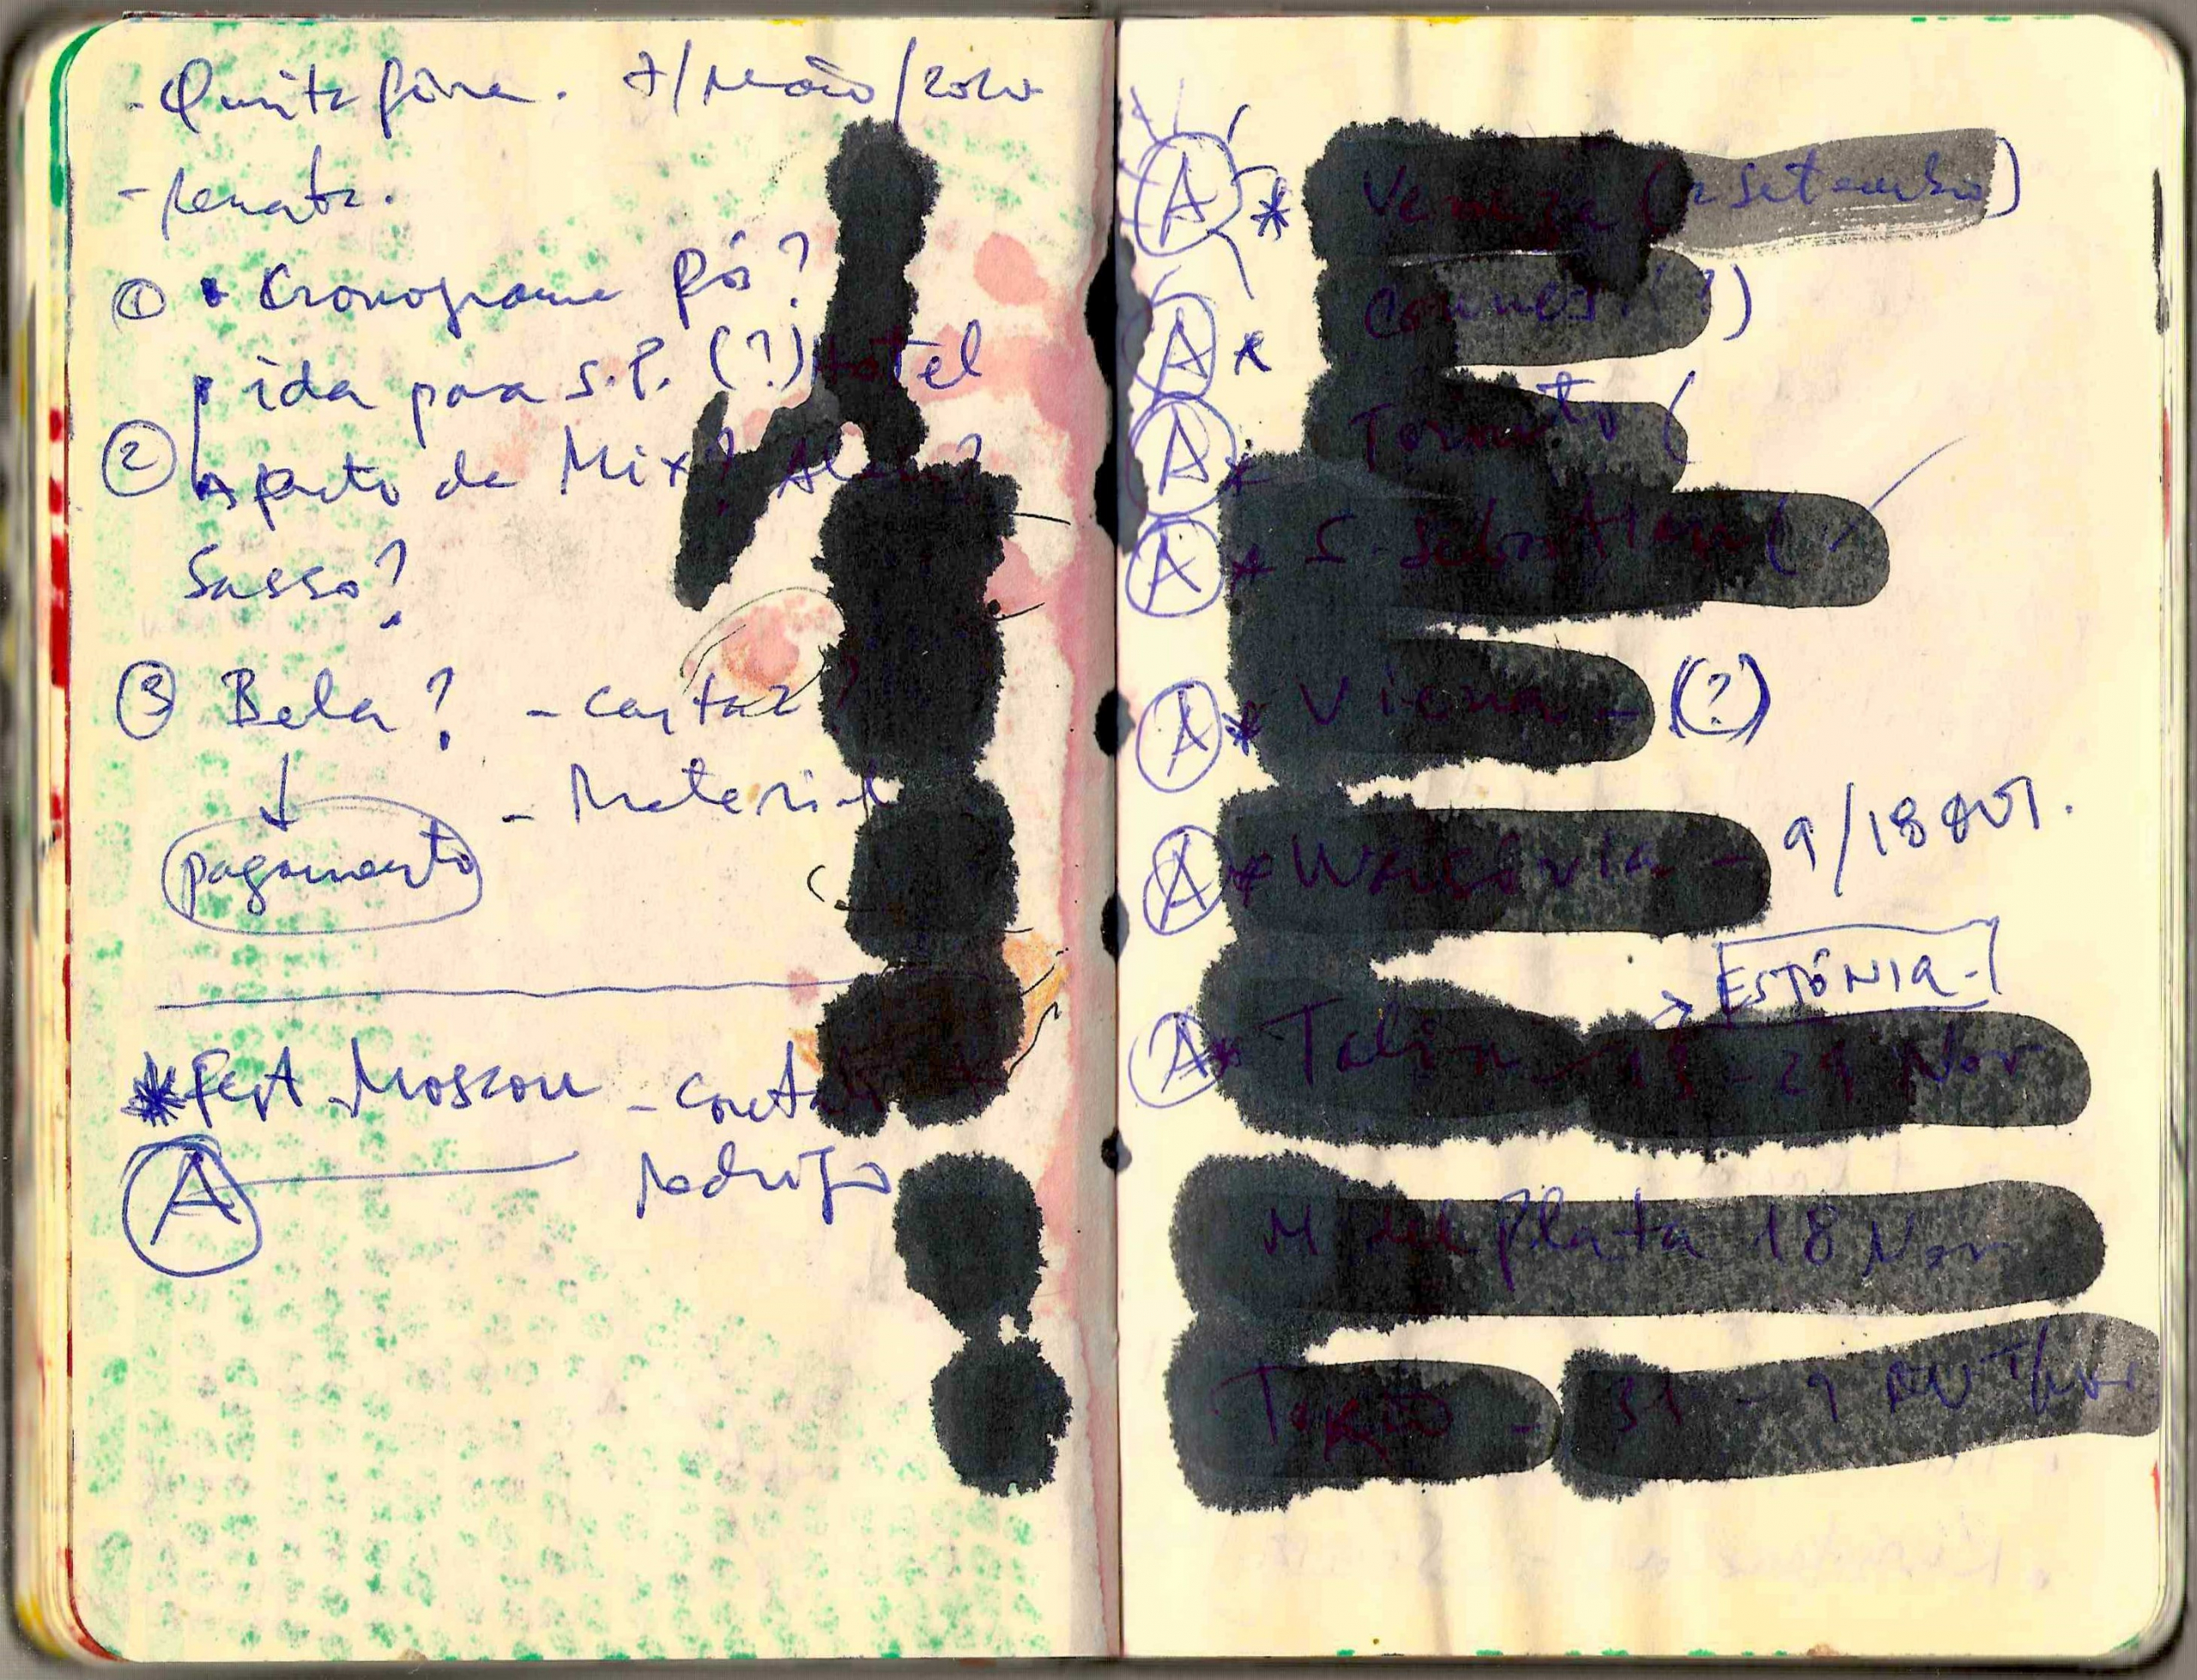 - Quinta feira. 7/maio/2020
- Renata.
① • Cronograma Pós?
ida para S.P. (?) Hotel
② Aporto de Mix?
Sasso?
③ Bela? - cartaz?
↓ - Material
pagamento
* Fest Moscou - contato
A Rodrigo
A * Veneza (2 setembro)
A * Cannes (?)
A * Toronto (
A * S. Sebastian (
A * Viena - (?)
A * Varsóvia - 9/18 OUT.
→ ESTÔNIA -
A * Talin - 13 - 29 Nov
M del Plata 18 Nov
Tokio - 31 - 9 OUT/Nov